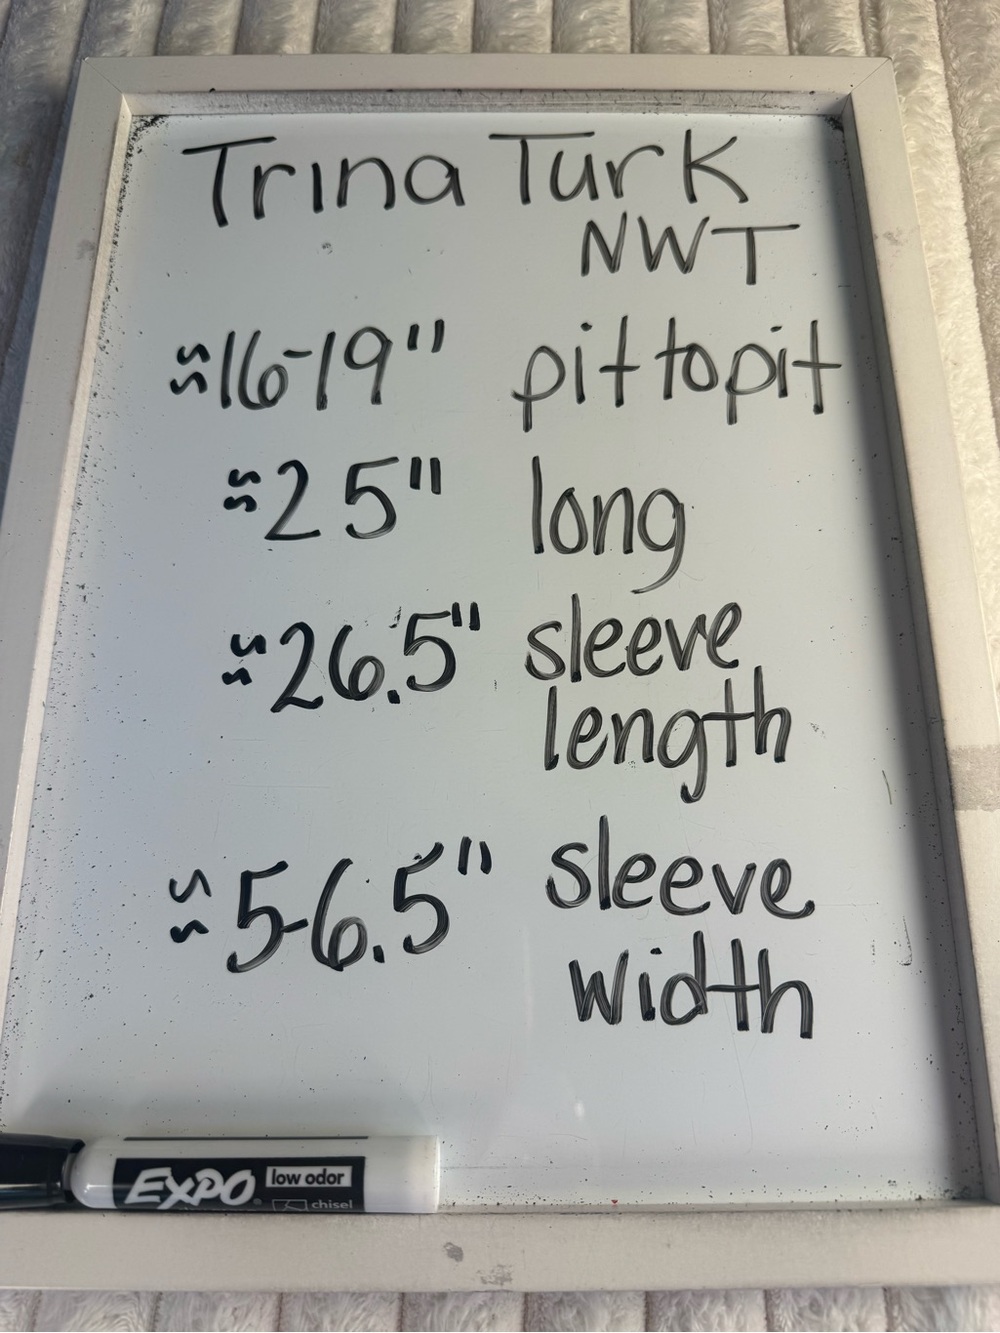 Trina Turk
NWT
≈16-19" pit to pit
≈25" long
≈26.5" sleeve
length
≈5-6.5" sleeve
width
EXPO® low odor
chisel